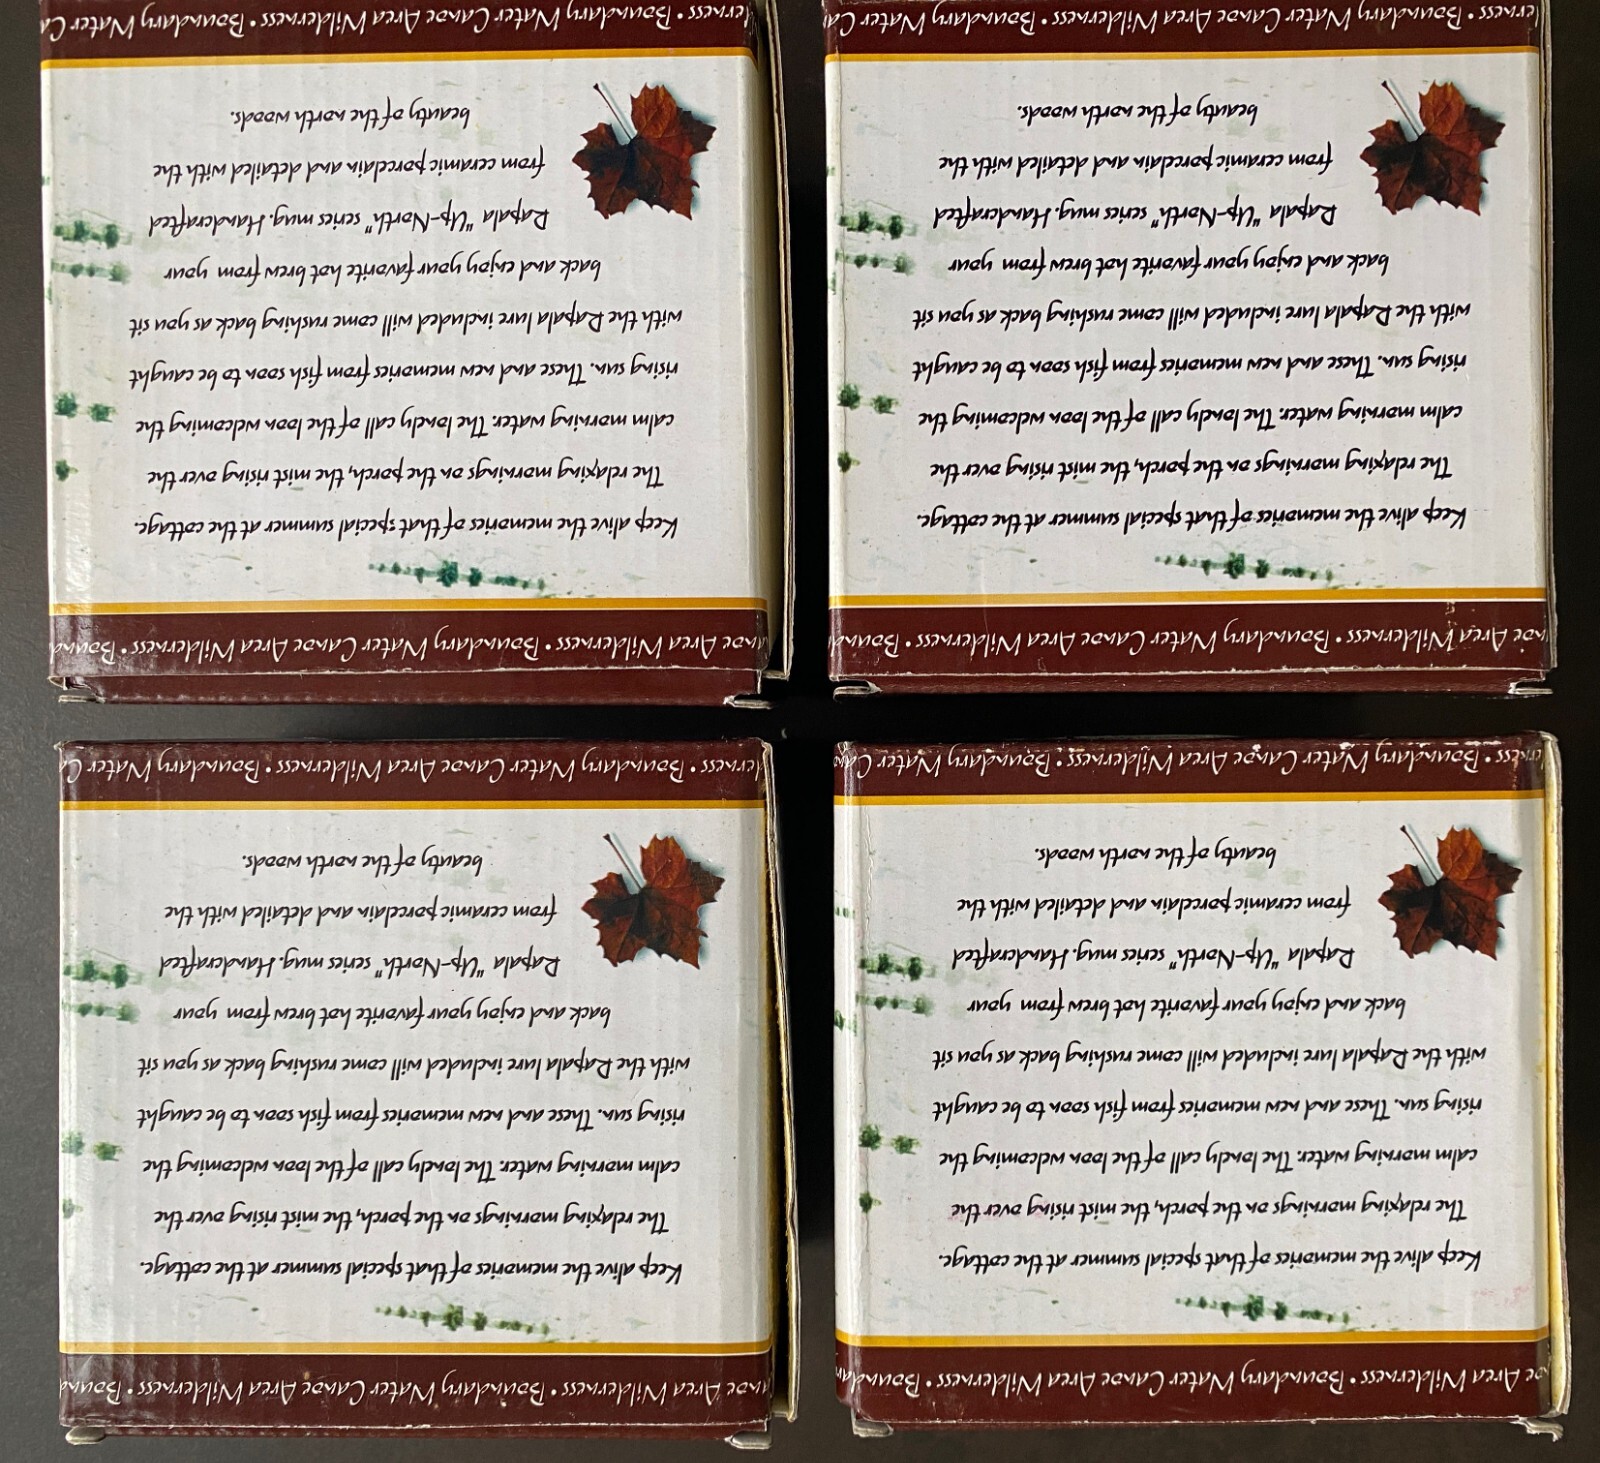 noe Area Wilderness • Boundary Water Canoe Area Wilderness • Bound
Keep alive the memories of that special summer at the cottage.
The relaxing mornings on the porch, the mist rising over the
calm morning water. The lonely call of the loon welcoming the
rising sun. These and new memories from fish soon to be caught
with the Rapala lure included will come rushing back as you sit
back and enjoy your favorite hot brew from your
Rapala "Up-North" series mug. Handcrafted
from ceramic porcelain and detailed with the
beauty of the north woods.
derness • Boundary Water Canoe Area Wilderness • Boundary Water Ca
noe Area Wilderness • Boundary Water Canoe Area Wilderness • Bound
Keep alive the memories of that special summer at the cottage.
The relaxing mornings on the porch, the mist rising over the
calm morning water. The lonely call of the loon welcoming the
rising sun. These and new memories from fish soon to be caught
with the Rapala lure included will come rushing back as you sit
back and enjoy your favorite hot brew from your
Rapala "Up-North" series mug. Handcrafted
from ceramic porcelain and detailed with the
beauty of the north woods.
derness • Boundary Water Canoe Area Wilderness • Boundary Water Ca
noe Area Wilderness • Boundary Water Canoe Area Wilderness • Bound
Keep alive the memories of that special summer at the cottage.
The relaxing mornings on the porch, the mist rising over the
calm morning water. The lonely call of the loon welcoming the
rising sun. These and new memories from fish soon to be caught
with the Rapala lure included will come rushing back as you sit
back and enjoy your favorite hot brew from your
Rapala "Up-North" series mug. Handcrafted
from ceramic porcelain and detailed with the
beauty of the north woods.
derness • Boundary Water Canoe Area Wilderness • Boundary Water Ca
noe Area Wilderness • Boundary Water Canoe Area Wilderness • Bound
Keep alive the memories of that special summer at the cottage.
The relaxing mornings on the porch, the mist rising over the
calm morning water. The lonely call of the loon welcoming the
rising sun. These and new memories from fish soon to be caught
with the Rapala lure included will come rushing back as you sit
back and enjoy your favorite hot brew from your
Rapala "Up-North" series mug. Handcrafted
from ceramic porcelain and detailed with the
beauty of the north woods.
derness • Boundary Water Canoe Area Wilderness • Boundary Water Ca